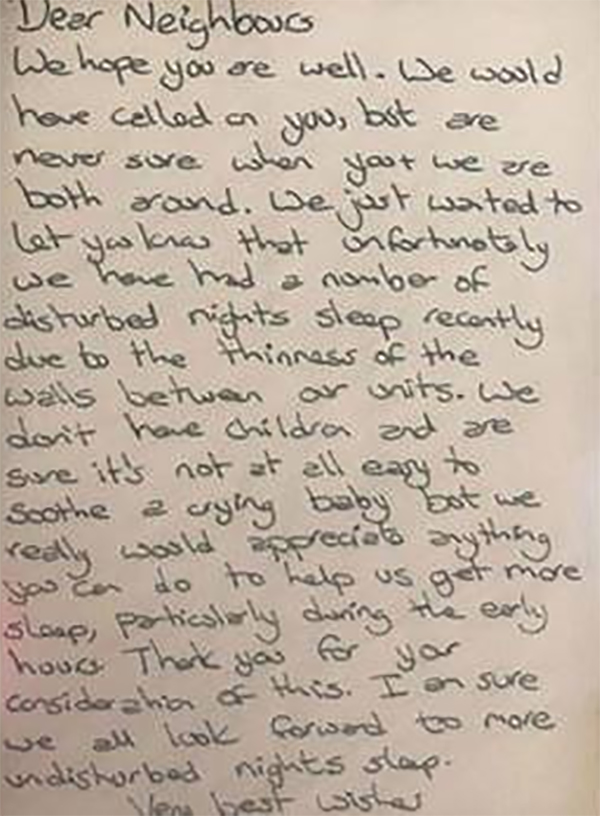 Dear Neighbours
We hope you are well. We would
have called on you, but are
never sure when you + we are
both around. We just wanted to
let you know that unfortunately
we have had a number of
disturbed nights sleep recently
due to the thinness of the
walls between our units. We
don't have children and are
sure it's not at all easy to
soothe a crying baby but we
really would appreciate anything
you can do to help us get more
sleep, particularly during the early
hours Thank you for your
consideration of this. I am sure
we all look forward to more
undisturbed nights sleep.
Very best wishes